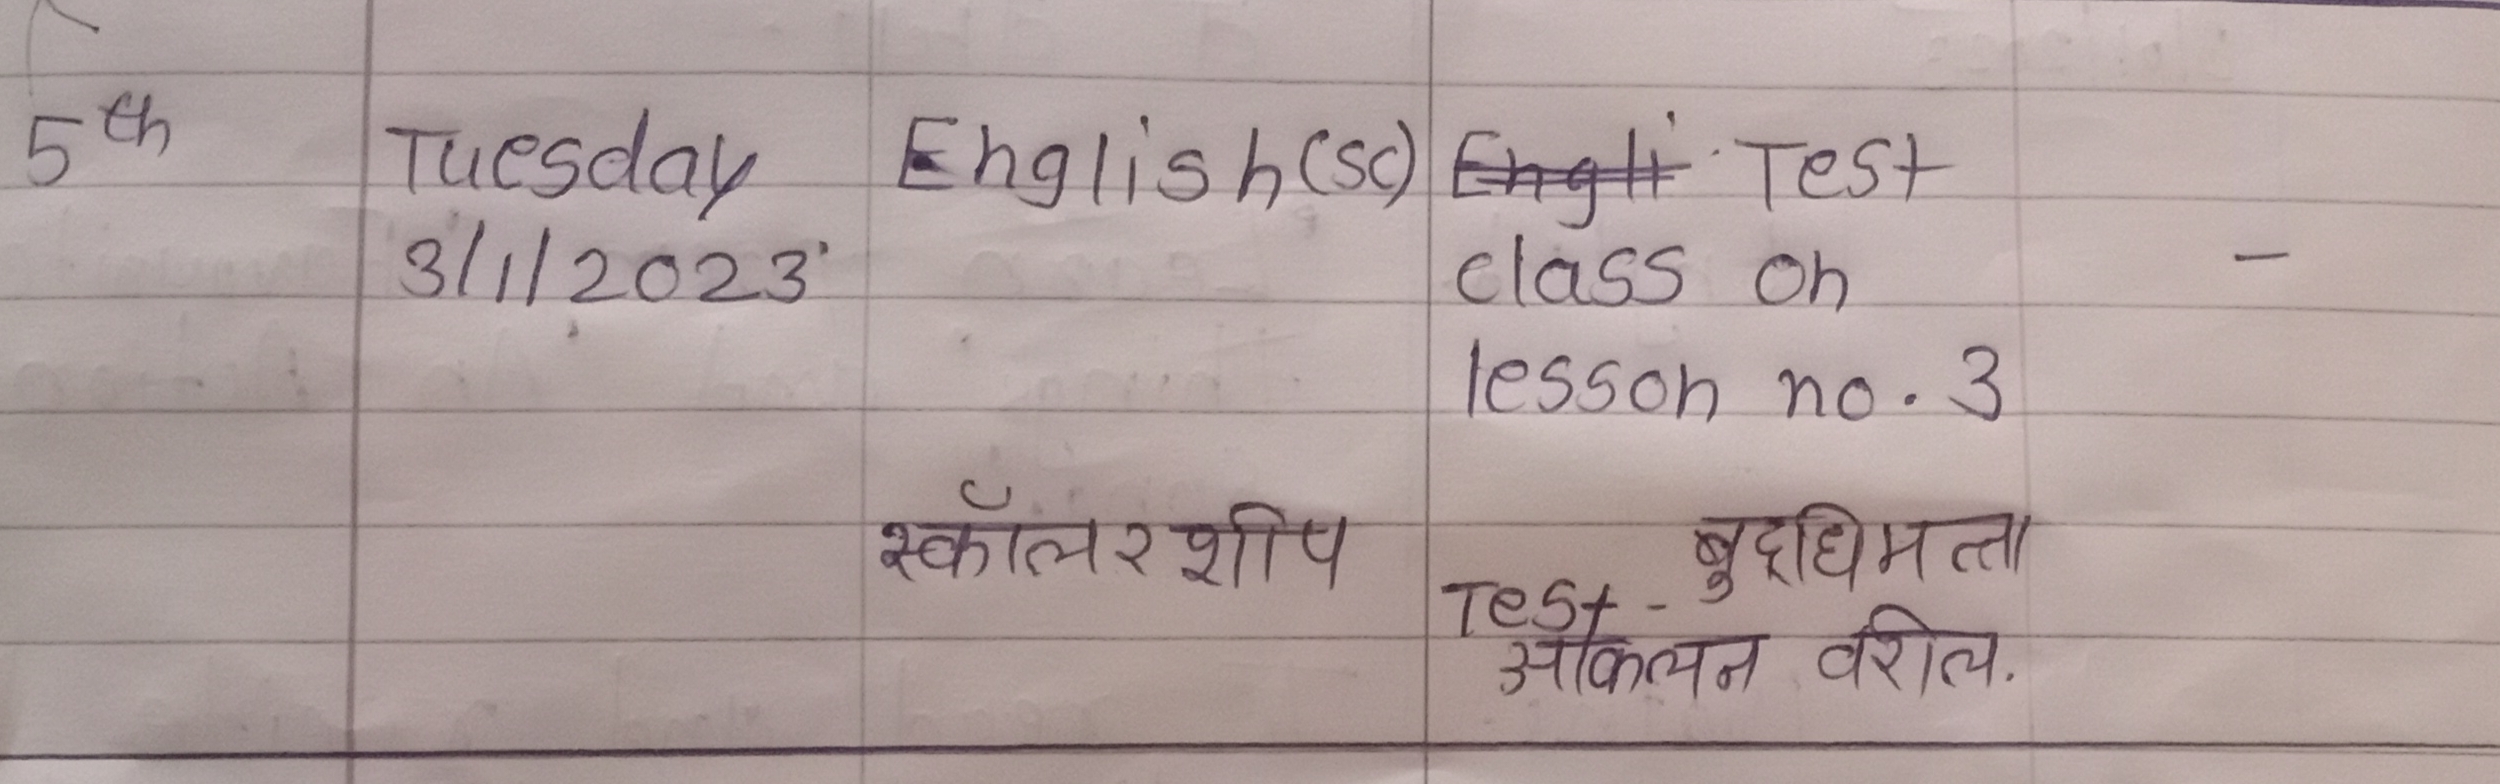 5th Tuesday English(SC) Engli Test
3/1/2023 class on -
lesson no. 3
स्कॉलरशीप बुद्धिमत्ता
Test -
आकलन वरील.